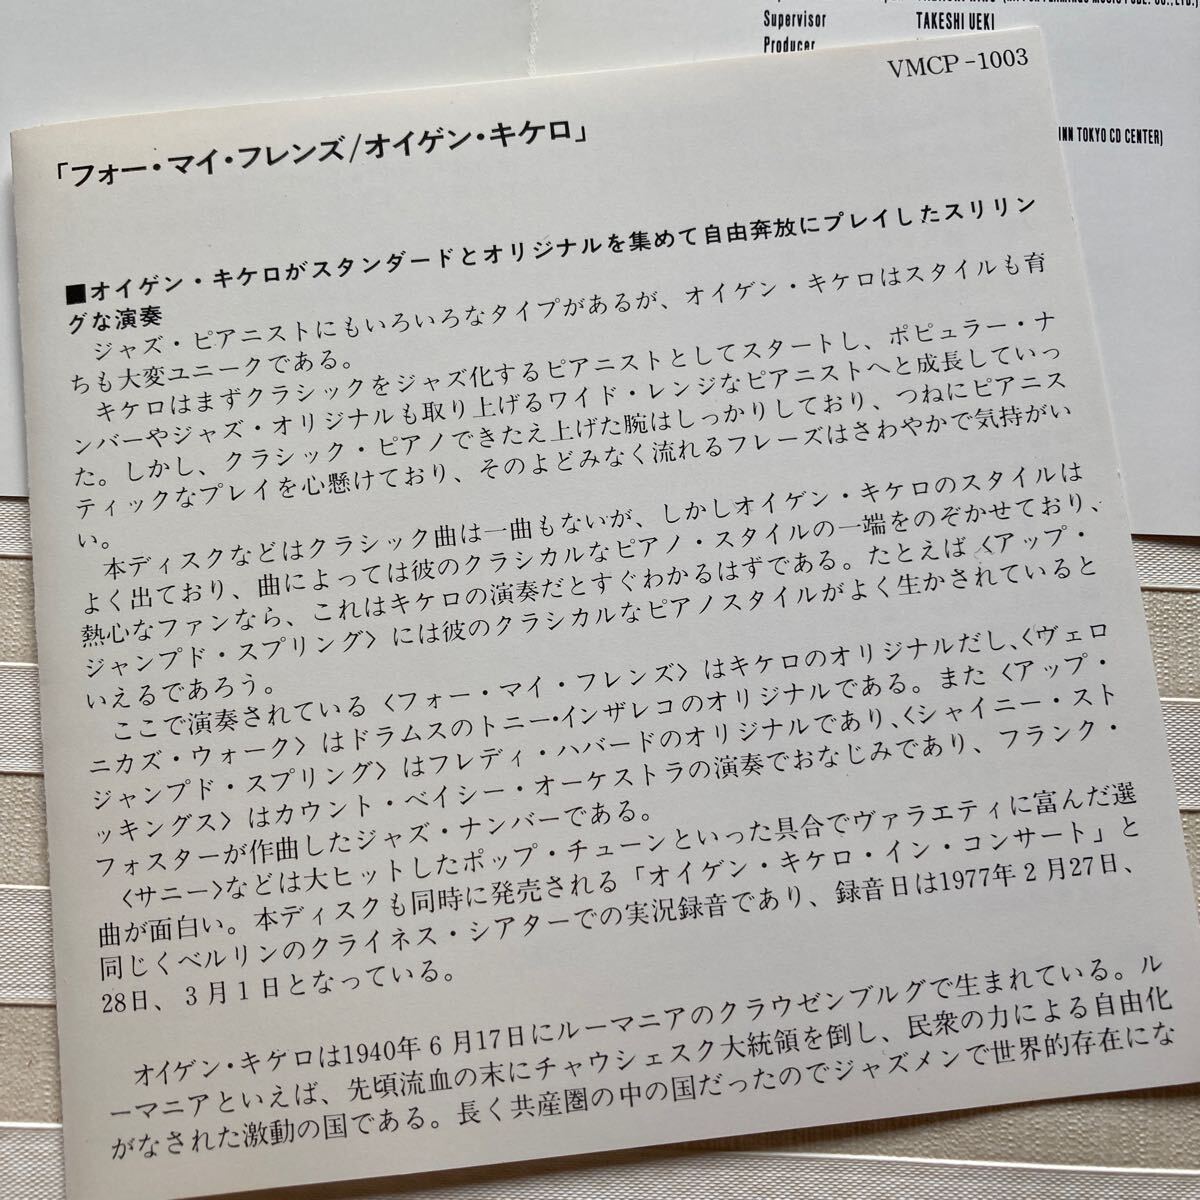 Supervisor TAKESHI UEKI
Producer
INN TOKYO CD CENTER)
VMCP-1003
「フォー・マイ・フレンズ/オイゲン・キケロ」
■オイゲン・キケロがスタンダードとオリジナルを集めて自由奔放にプレイしたスリリン
グな演奏
ジャズ・ピアニストにもいろいろなタイプがあるが、オイゲン・キケロはスタイルも育
ちも大変ユニークである。
キケロはまずクラシックをジャズ化するピアニストとしてスタートし、ポピュラー・ナ
ンバーやジャズ・オリジナルも取り上げるワイド・レンジなピアニストへと成長していっ
た。しかし、クラシック・ピアノできたえ上げた腕はしっかりしており、つねにピアニス
ティックなプレイを心懸けており、そのよどみなく流れるフレーズはさわやかで気持がい
い。
本ディスクなどはクラシック曲は一曲もないが、しかしオイゲン・キケロのスタイルは
よく出ており、曲によっては彼のクラシカルなピアノ・スタイルの一端をのぞかせており、
熱心なファンなら、これはキケロの演奏だとすぐわかるはずである。たとえば〈アップ・
ジャンプド・スプリング〉には彼のクラシカルなピアノスタイルがよく生かされていると
いえるであろう。
ここで演奏されている〈フォー・マイ・フレンズ〉はキケロのオリジナルだし、〈ヴェロ
ニカズ・ウォーク〉はドラムスのトニー・インザレコのオリジナルである。また〈アップ・
ジャンプド・スプリング〉はフレディ・ハバードのオリジナルであり、〈シャイニー・スト
ッキングス〉はカウント・ベイシー・オーケストラの演奏でおなじみであり、フランク・
フォスターが作曲したジャズ・ナンバーである。
〈サニー〉などは大ヒットしたポップ・チューンといった具合でヴァラエティに富んだ選
曲が面白い。本ディスクも同時に発売される「オイゲン・キケロ・イン・コンサート」と
同じくベルリンのクライネス・シアターでの実況録音であり、録音日は1977年2月27日、
28日、3月1日となっている。
オイゲン・キケロは1940年6月17日にルーマニアのクラウゼンブルグで生まれている。ル
ーマニアといえば、先頃流血の末にチャウシェスク大統領を倒し、民衆の力による自由化
がなされた激動の国である。長く共産圏の中の国だったのでジャズメンで世界的存在にな